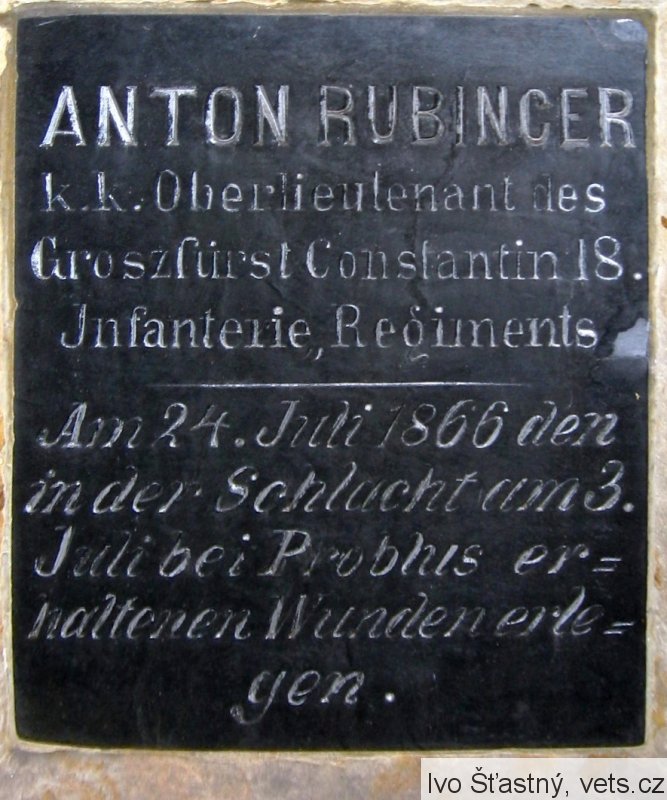 ANTON RUBINGER
k.k. Oberlieutenant des
Groszfürst Constantin 18.
Infanterie„ Regiments
Am 24. Juli 1866 den
in der Schlacht am 3.
Juli bei Problus er=
haltenen Wunden erle=
gen.
Ivo Šťastný, vets.cz